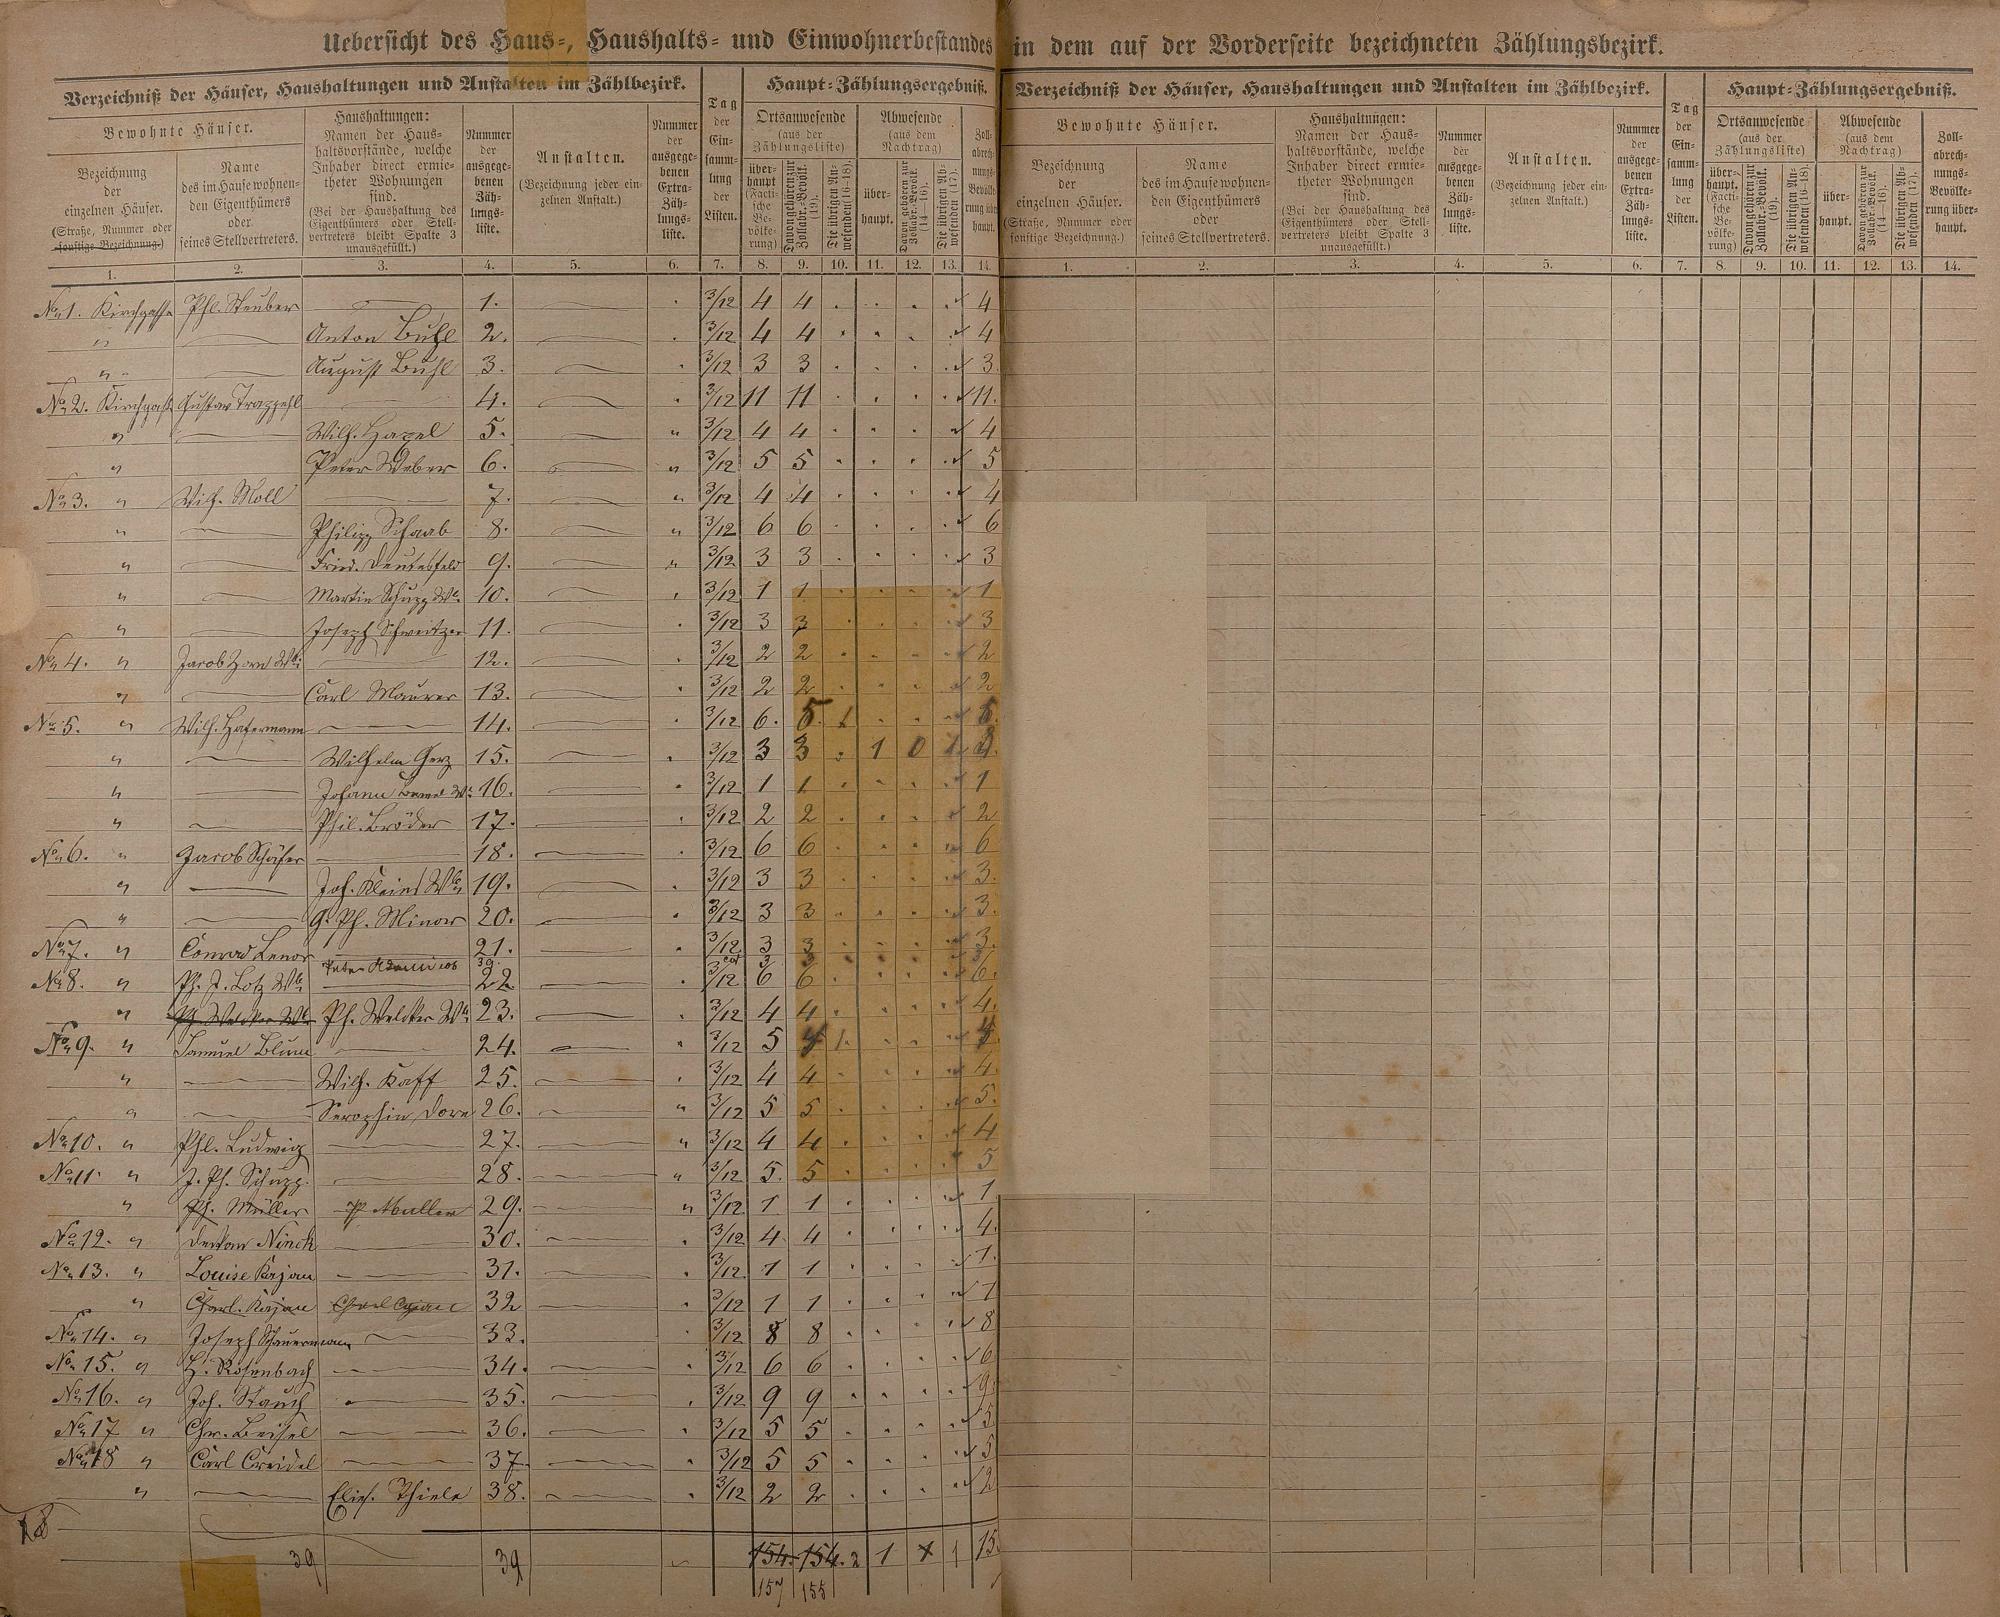 Uebersicht des Haus-, Haushalts- und Einwohnerbestandes in dem auf der Vorderseite bezeichneten Zählungsbezirk.
Verzeichniß der Häuser, Haushaltungen und Anstalten im Zählbezirk.
Tag der Ein- samm- lung der Listen.
Haupt-Zählungsergebniß.
Bewohnte Häuser.
Bezeichnung der einzelnen Häuser. (Straße, Nummer oder sonstige Bezeichnung.)
Name des im Hause wohnen- den Eigenthümers oder seines Stellvertreters.
Haushaltungen: Namen der Haus- haltsvorstände, welche Inhaber direct ermie- theter Wohnungen sind. (Bei der Haushaltung des Eigenthümers oder Stell- vertreters bleibt Spalte 3 unausgefüllt.)
Nummer der ausgege- benen Zäh- lungs- liste.
Anstalten. (Bezeichnung jeder ein- zelnen Anstalt.)
Nummer der ausgege- benen Extra- Zäh- lungs- liste.
Ortsanwesende (aus der Zählungsliste)
über- haupt (Facti- sche Be- völke- rung)
Davon gehören zur Zollabr.-Bevölk. (19).
Die übrigen An- wesenden (16-18).
Abwesende (aus dem Nachtrag)
über- haupt.
Davon gehören zur Zollabr.-Bevölk. (14-16).
Die übrigen Ab- wesenden (17).
Zoll- abrech- nungs- Bevölke- rung über- haupt.
1. 2. 3. 4. 5. 6. 7. 8. 9. 10. 11. 12. 13. 14.
No 1. Kirchgasse Phl. Steuber 1. 3/12 4 4 4
" Anton Buhl 2. 3/12 4 4 4
" August Buhl 3. 3/12 3 3 3
No 2. Kirchgasse Gustav Trappehl 4. 3/12 11 11 11.
" Wilh. Hazel 5. " 3/12 4 4 4
" Peter Weber 6. " 3/12 5 5 5
No 3. " Wilh. Moll 7. " 3/12 4 4 4
" Philipp Schaab 8. " 3/12 6 6 6
" Fried. Deutesfeld 9. " 3/12 3 3 3
" Martin Schupp Wb. 10. 3/12 1 1 1
" Joseph Schweitzer 11. 3/12 3 3 3
No 4. " Jacob Zorn Wb. 12. 3/12 2 2 2
" Carl Maurer 13. 3/12 2 2 2
No 5. " Wilh. Hafermann 14. 3/12 6. 5. 1 5.
" Wilhelm Herz 15. 3/12 3 3 1 0 1
" Johann 16. 3/12 1 1 1
" Phil. Bröder 17. 3/12 2 2 2
No 6. " Jacob Schäfer 18. 3/12 6 6 6
" Joh. Kleins Wb. 19. 3/12 3 3 3.
" G. Ph. Minor 20. 3/12 3 3 3.
No 7. " Conrad Lenor 21. 3/12 3 3 3.
Peter 39. 3 3 3
No 8. " Ph. J. Lotz Wb. 22 3/12 6 6 6.
" Ph. Welcker Wb. Ph. Welcker Wb. 23. 3/12 4 4 4.
No 9. " Samuel Blum 24. 3/12 5 4 1.
" Wilh. Kaff 25. 3/12 4 4 4.
" Seraphin Dorn 26. " 3/12 5 5 5.
No 10. " Phl. Ludwig 27. " 3/12 4 4 4
No 11. " J. Ph. Schupp. 28. " 3/12 5. 5 5
" Ph. Müller Ph Muller 29. " 3/12 1 1 1
No 12. " Dekan Ninck 30. 3/12 4 4 4.
No 13. " Louise Kajan 31. 3/12 1 1 1.
" Charl. Kajan 32 3/12 1 1 1
No 14. " Joseph Schauermann 33. 3/12 8 8 8
No 15. " H. Rosenbach 34. 3/12 6 6 6
No 16. " Joh. Stauch 35. 3/12 9 9 9.
No 17 " Chr. Beisel 36. 3/12 5 5 5
No 18 " Carl Creidel 37. 3/12 5 5 5
" Elis. Thiele 38. 3/12 2 2 2
18
39 39 154. 154. 2 1 1
157 155
Verzeichniß der Häuser, Haushaltungen und Anstalten im Zählbezirk.
Tag der Ein- samm- lung der Listen.
Haupt-Zählungsergebniß.
Bewohnte Häuser.
Bezeichnung der einzelnen Häuser. (Straße, Nummer oder sonstige Bezeichnung.)
Name des im Hause wohnen- den Eigenthümers oder seines Stellvertreters.
Haushaltungen: Namen der Haus- haltsvorstände, welche Inhaber direct ermie- theter Wohnungen sind. (Bei der Haushaltung des Eigenthümers oder Stell- vertreters bleibt Spalte 3 unausgefüllt.)
Nummer der ausgege- benen Zäh- lungs- liste.
Anstalten. (Bezeichnung jeder ein- zelnen Anstalt.)
Nummer der ausgege- benen Extra- Zäh- lungs- liste.
Ortsanwesende (aus der Zählungsliste)
über- haupt. (Facti- sche Be- völke- rung)
Davon gehören zur Zollabr.-Bevölk. (19).
Die übrigen An- wesenden (16-18).
Abwesende (aus dem Nachtrag)
über- haupt.
Davon gehören zur Zollabr.-Bevölk. (14-16).
Die übrigen Ab- wesenden (17).
Zoll- abrech- nungs- Bevölke- rung über- haupt.
1. 2. 3. 4. 5. 6. 7. 8. 9. 10. 11. 12. 13. 14.